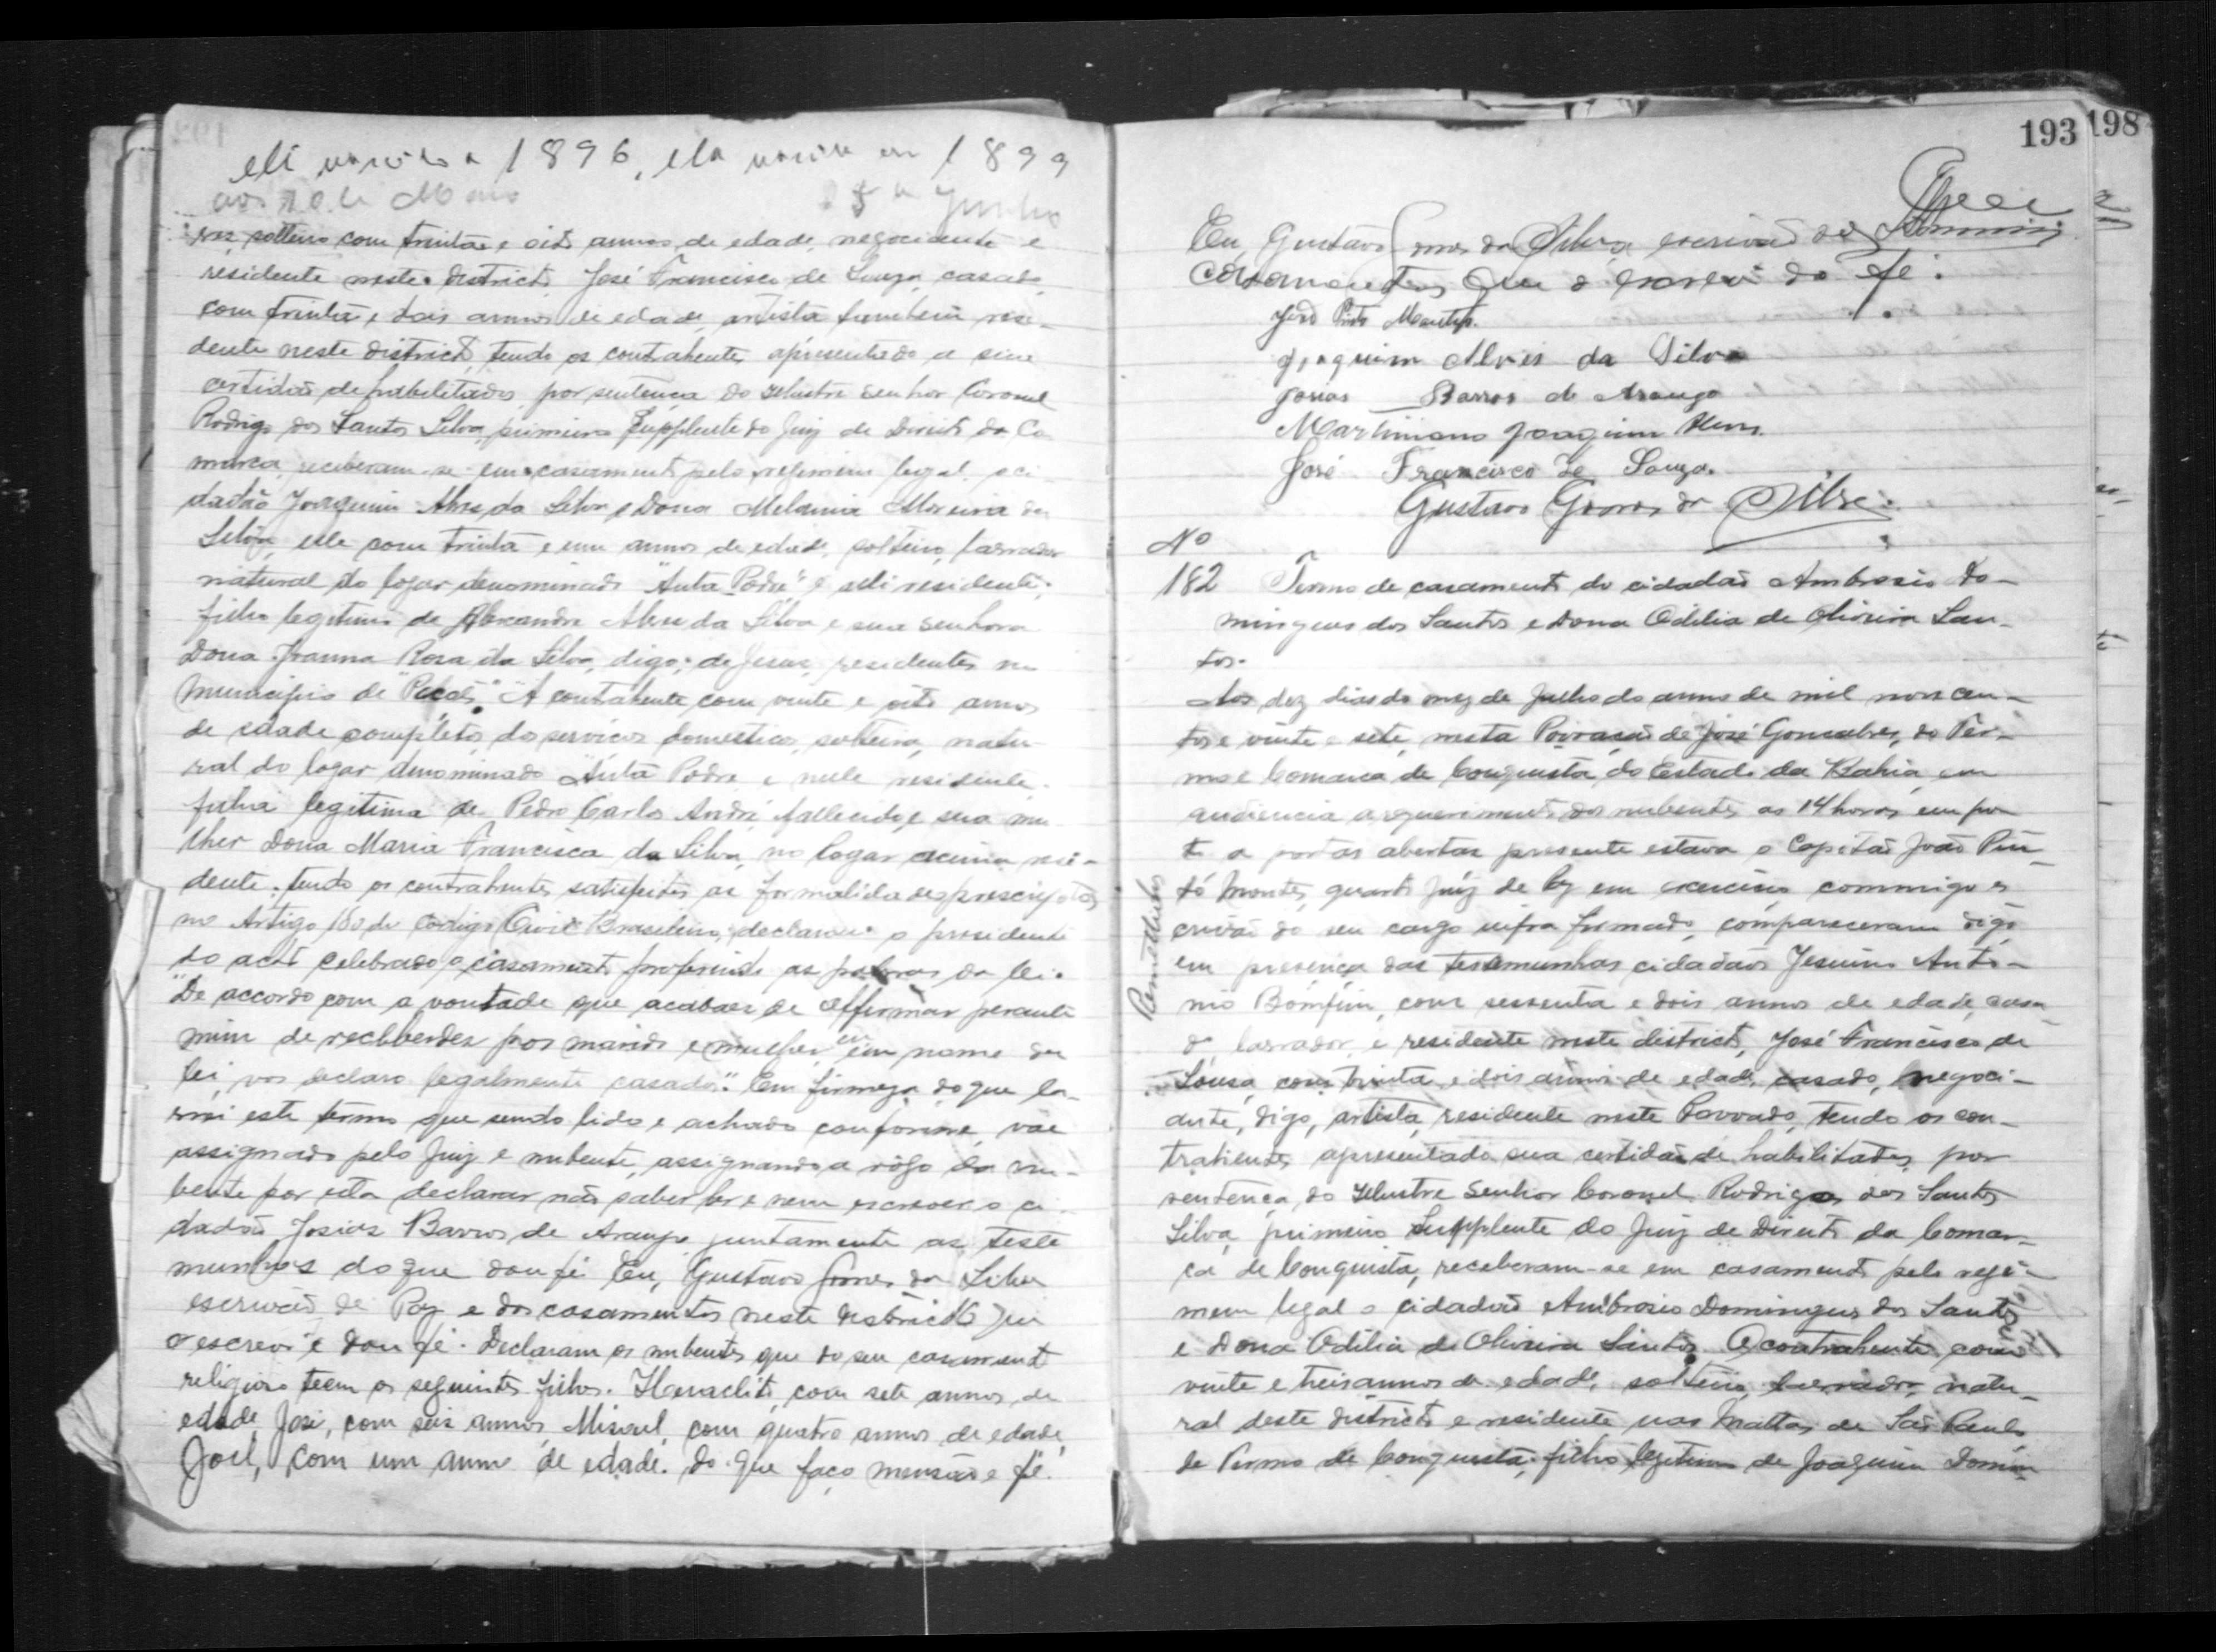 elle nascido a 1896, ela nascida em 1899
aos 20 de Maio 25 de Junho
ves solteiro com trinta e oito annos de edade, negociante e
residente neste districto, José Francisco de Souza, casado
com trinta e dois annos de edade, artista tambem resi-
dente neste districto, tendo os contrahentes apresentado a sua
certidão de habilitados por sentença do Illustre Senhor Coronel
Rodrigo dos Santos Silva, primeiro Supplente do Juiz de Direito da Co
marca, receberam-se em casamento pelo regimem legal o ci
dadão Joaquim Alves da Silva e Dona Melania Moreira da
Silva, elle com trinta e um annos de edade, solteiro, lavrador
natural do logar denominado "Anta Podre" e alli residente;
filho legitimo de Alexandre Alves da Silva e sua senhora
Dona Joanna Rosa da Silva, digo, de Jesus, residentes no
Municipio de "Poções." A contrahente com vinte e oito annos
de edade completos, do serviços domestico, solteira, natu-
ral do logar denominado Anta Podre e nelle residente,
filha legitima de Pedro Carlos André, fallecido, e sua mu
lher Dona Maria Francisca da Silva, no logar acima resi-
dente, tendo os contrahentes satisfeitos as formalidades prescriptas
no Artigo 180 do Codigo Civil Brasileiro, declarou o presidente
do acto celebrado o casamento proferindo as palavras da lei.
"De accordo com a vontade que acabaes de affirmar perante
mim de receberdes por marido e mulher, eu em nome da
lei, vos declaro legalmente casados." Em firmeza do que la-
vrei este termo que sendo lido e achado conforme, vae
assignado pelo Juiz e nubente, assignando a rogo da nu-
bente por esta declarar não saber ler e nem escrever o ci
dadão Josias Barros de Araujo juntamente as teste
munhas do que dou fé. Eu, Gustavo Gomes da Silva
escrivão de Paz e dos casamentos neste districto que
o escrevi e dou fé. Declaram os nubentes que do seu casamento
religioso teem os seguintes filhos. Heraclito, com sete annos de
edade, José, com seis annos, Misael, com quatro annos de edade,
Joel, com um anno de edade. Do que faço mensão e fé.
193 198
Eu Gustavo Gomes da Silva escrivão dos
casamentos que o escrevi dou fé.
João Pinto Montes.
Joaquim Alves da Silva
Josias Barros de Araujo
Martiniano Joaquim Alves.
José Francisco de Souza.
Gustavo Gomes da Silva
Nº
182 Termo de casamento do cidadão Ambrosio Do-
mingues dos Santos e Dona Odilia de Oliveira San-
tos.
Aos dez dias do mez de Julho do anno de mil nove cen-
tos e vinte e sete, nesta Povoação de José Gonsalves, do Ter-
mo e Comarca de Conquista, do Estado da Bahia, em
audiencia a requerimento dos nubentes as 14 horas, em pon
to a portas abertas presente estava o Capitão João Pin
to Montes, quarto Juiz de Paz em exercicio, commigo es
crivão do seu cargo infra firmado, compareceram digo
em presença das testemunhas cidadãos Jesuino Anto-
nio Bomfim, com sessenta e dois annos de edade, casa
do, lavrador, e residente neste districto, José Francisco de
Sousa, com trinta e dois annos de edade, casado, negoci-
ante, digo, artista, residente neste Povoado, tendo os con-
trahentes apresentado sua certidão de habilitados, por
sentença do Illustre Senhor Coronel Rodrigo dos Santos
Silva, primeiro Supplente do Juiz de Direito da Comar-
ca de Conquista, receberam-se em casamento pelo regi-
mem legal o cidadão Ambrosio Domingues dos Santos
e Dona Odilia de Oliveira Santos. O contrahente com
vinte e treis annos de edade, solteiro, lavrador, natu-
ral deste districto e residente nas Mattas de São Paulo
do Termo de Conquista, filho legitimo de Joaquim Domin